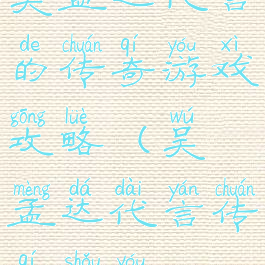 吴孟达代言
de chuán qí yóu xì
的传奇游戏
gōng lüè wú
攻略（吴
mèng dá dài yán chuán
孟达代言传
qí shǒu yóu